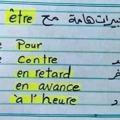 être مع هامة
Pour
contre
en retard
en avance
à l'heure